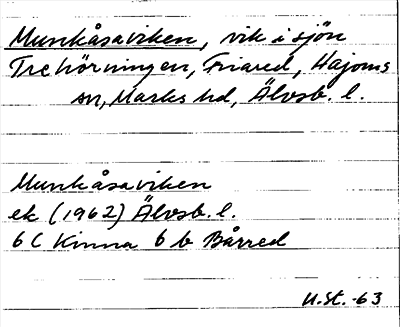 Munkåsaviken, vik i sjön
Trehörningen, Friared, Hajoms
sn, Marks hd, Älvsb. l.
Munkåsaviken
ek (1962) Älvsb. l.
6 C Kinna 6 b Bårred
U.St.-63